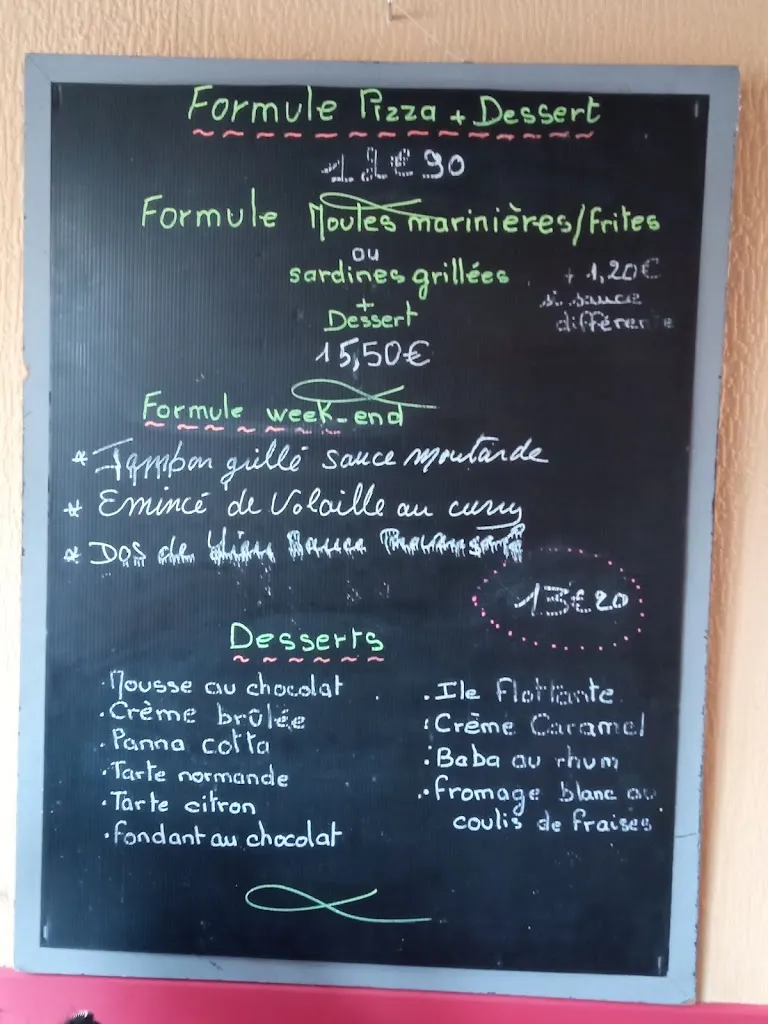 Formule Pizza + Dessert
11€90
Formule Moules marinières/frites
ou
sardines grillées
+ 1,20€
si sauce
différente
+
Dessert
15,50€
Formule week-end
* Jambon grillé sauce moutarde
* Emincé de Volaille au curry
* Dos de Sauce
13€20
Desserts
. Mousse au chocolat
. Crème brûlée
. Panna cotta
. Tarte normande
. Tarte citron
. fondant au chocolat
. Ile Flottante
. Crème Caramel
. Baba au rhum
. fromage blanc au
coulis de fraises